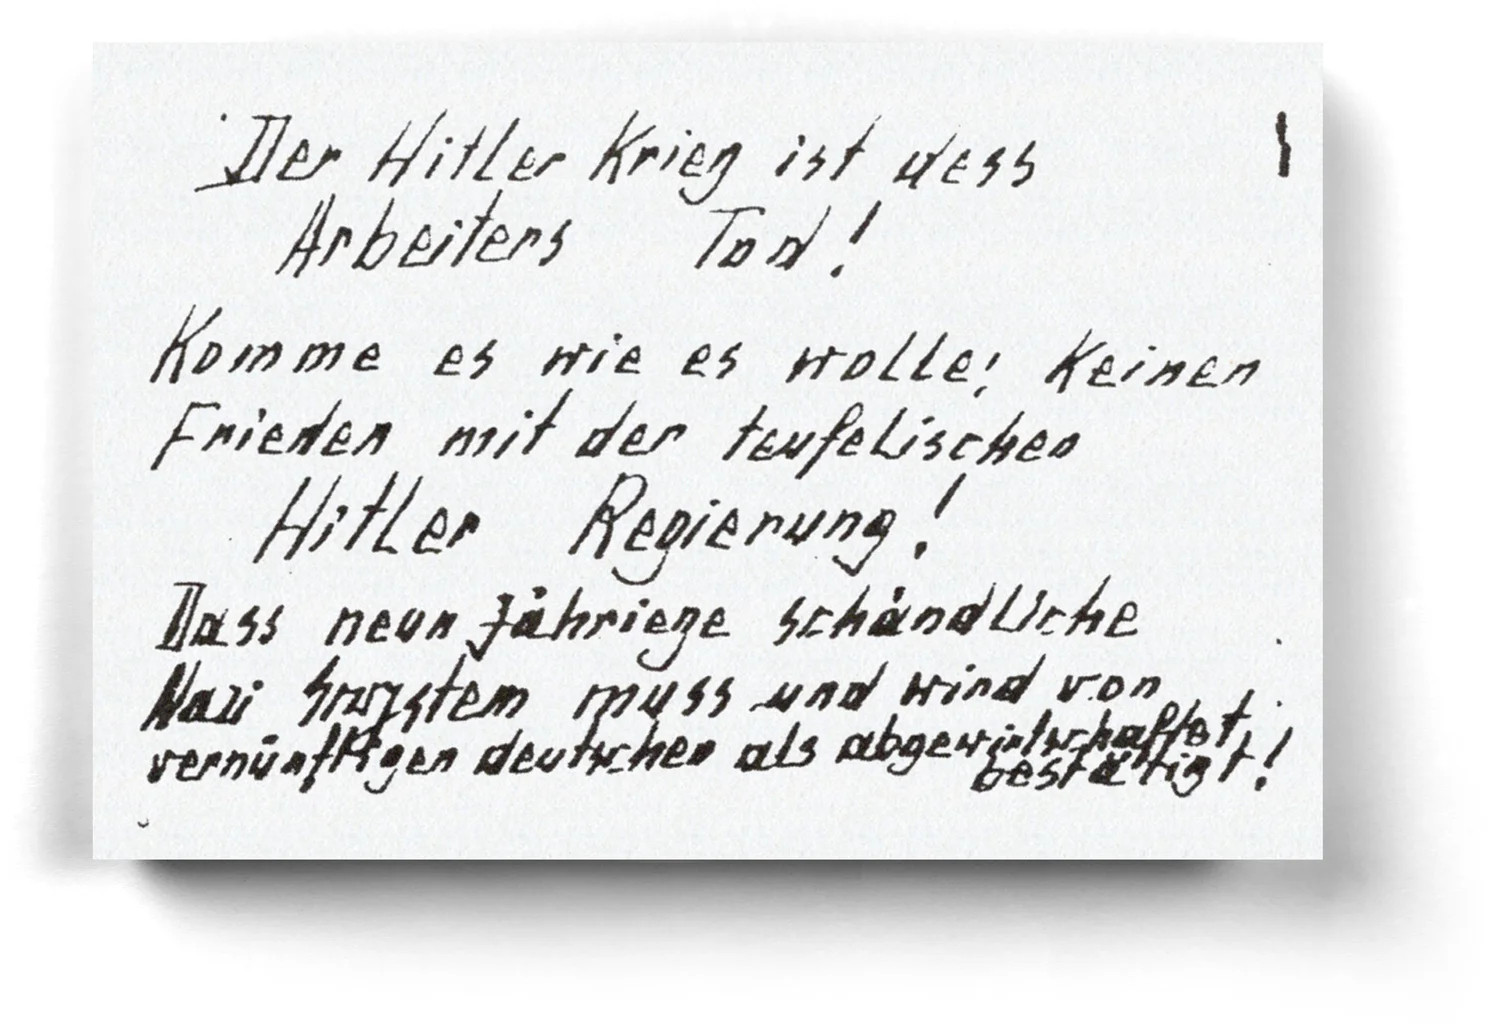 Der Hitler Krieg ist dess
Arbeiters Tod!
Komme es wie es wolle! Keinen
Frieden mit der teufelischen
Hitler Regierung!
Dass neun jähriege schändliche
Nazi muss und wird von
vernünftigen deutschen als abgewirtschaftet,
bestätigt!